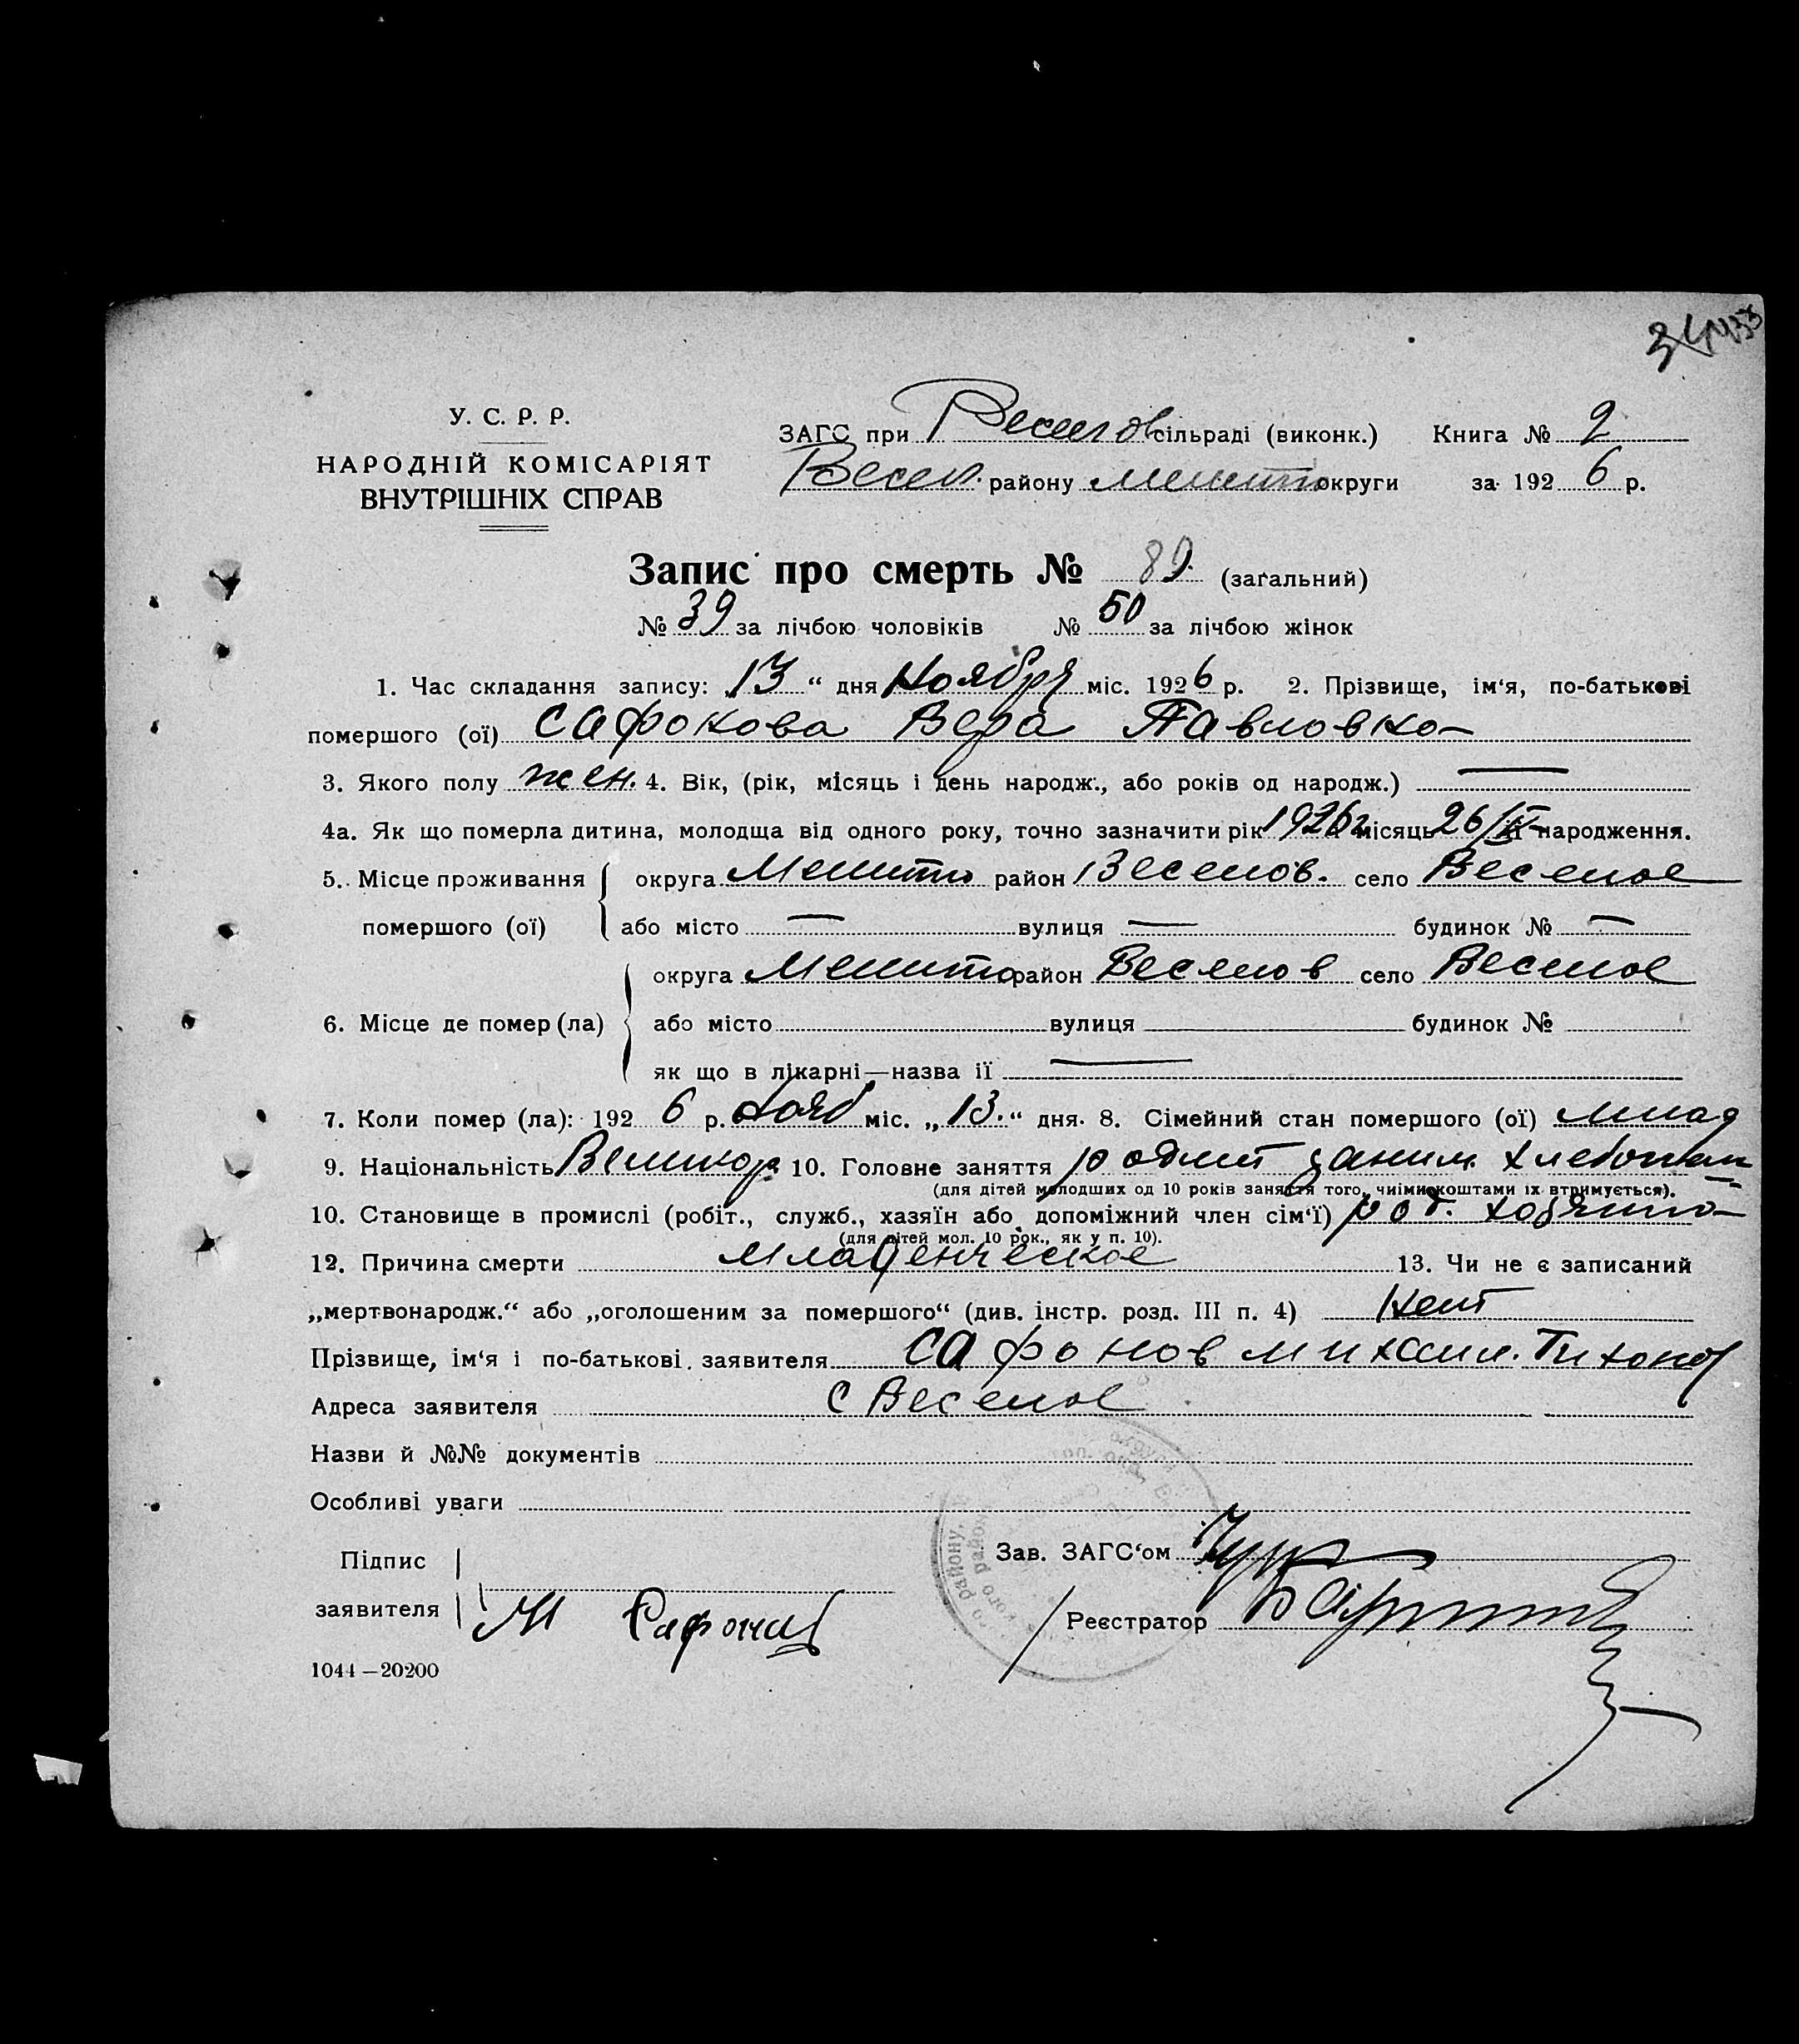 У. С. Р. Р.
НАРОДНІЙ КОМІСАРІЯТ
ВНУТРІШНІХ СПРАВ
ЗАГС при Веселов сільраді (виконк.) Книга № 2
Весел. району Мелито округи за 1926 р.
Запис про смерть № 89. (заґальний)
№ 39 за лічбою чоловіків № 50 за лічбою жінок
1. Час складання запису: „13“ дня Ноября міс. 1926 р. 2. Прізвище, ім‘я, по-батькові
помершого (ої) Сафонова Вера Павловна
3. Якого полу жен. 4. Вік, (рік, місяць і день народж., або років од народж.) —
4а. Як що померла дитина, молодща від одного року, точно зазначити рік 1926 г місяць 26/ її народження.
5. Місце проживання помершого (ої) округа Мелито район Веселов. село Веселое
або місто — вулиця — будинок № —
6. Місце де помер (ла) округа Мелито район Веселов село Веселое
або місто вулиця будинок №
як що в лікарні—назва її —
7. Коли помер (ла): 1926 р. Нояб міс. „13.“ дня. 8. Сімейний стан помершого (ої) млад
9. Національність Великор. 10. Головне заняття родит заним. хлебопаш
(для дітей молодших од 10 років заняття того, чиїми коштами їх втримується).
10. Становище в промислі (робіт., служб., хазяїн або допоміжний член сім‘ї) род.
(для дітей мол. 10 рок., як у п. 10).
12. Причина смерти Младенческое 13. Чи не є записаний
„мертвонародж.“ або „оголошеним за помершого“ (див. інстр. розд. III п. 4) Нет
Прізвище, ім‘я і по-батькові заявителя Сафонов Михаил. Тихонов
Адреса заявителя с Веселое
Назви й №№ документів
Особливі уваги
Підпис заявителя М Сафонов
Зав. ЗАГС‘ом
Реєстратор
1044—20200